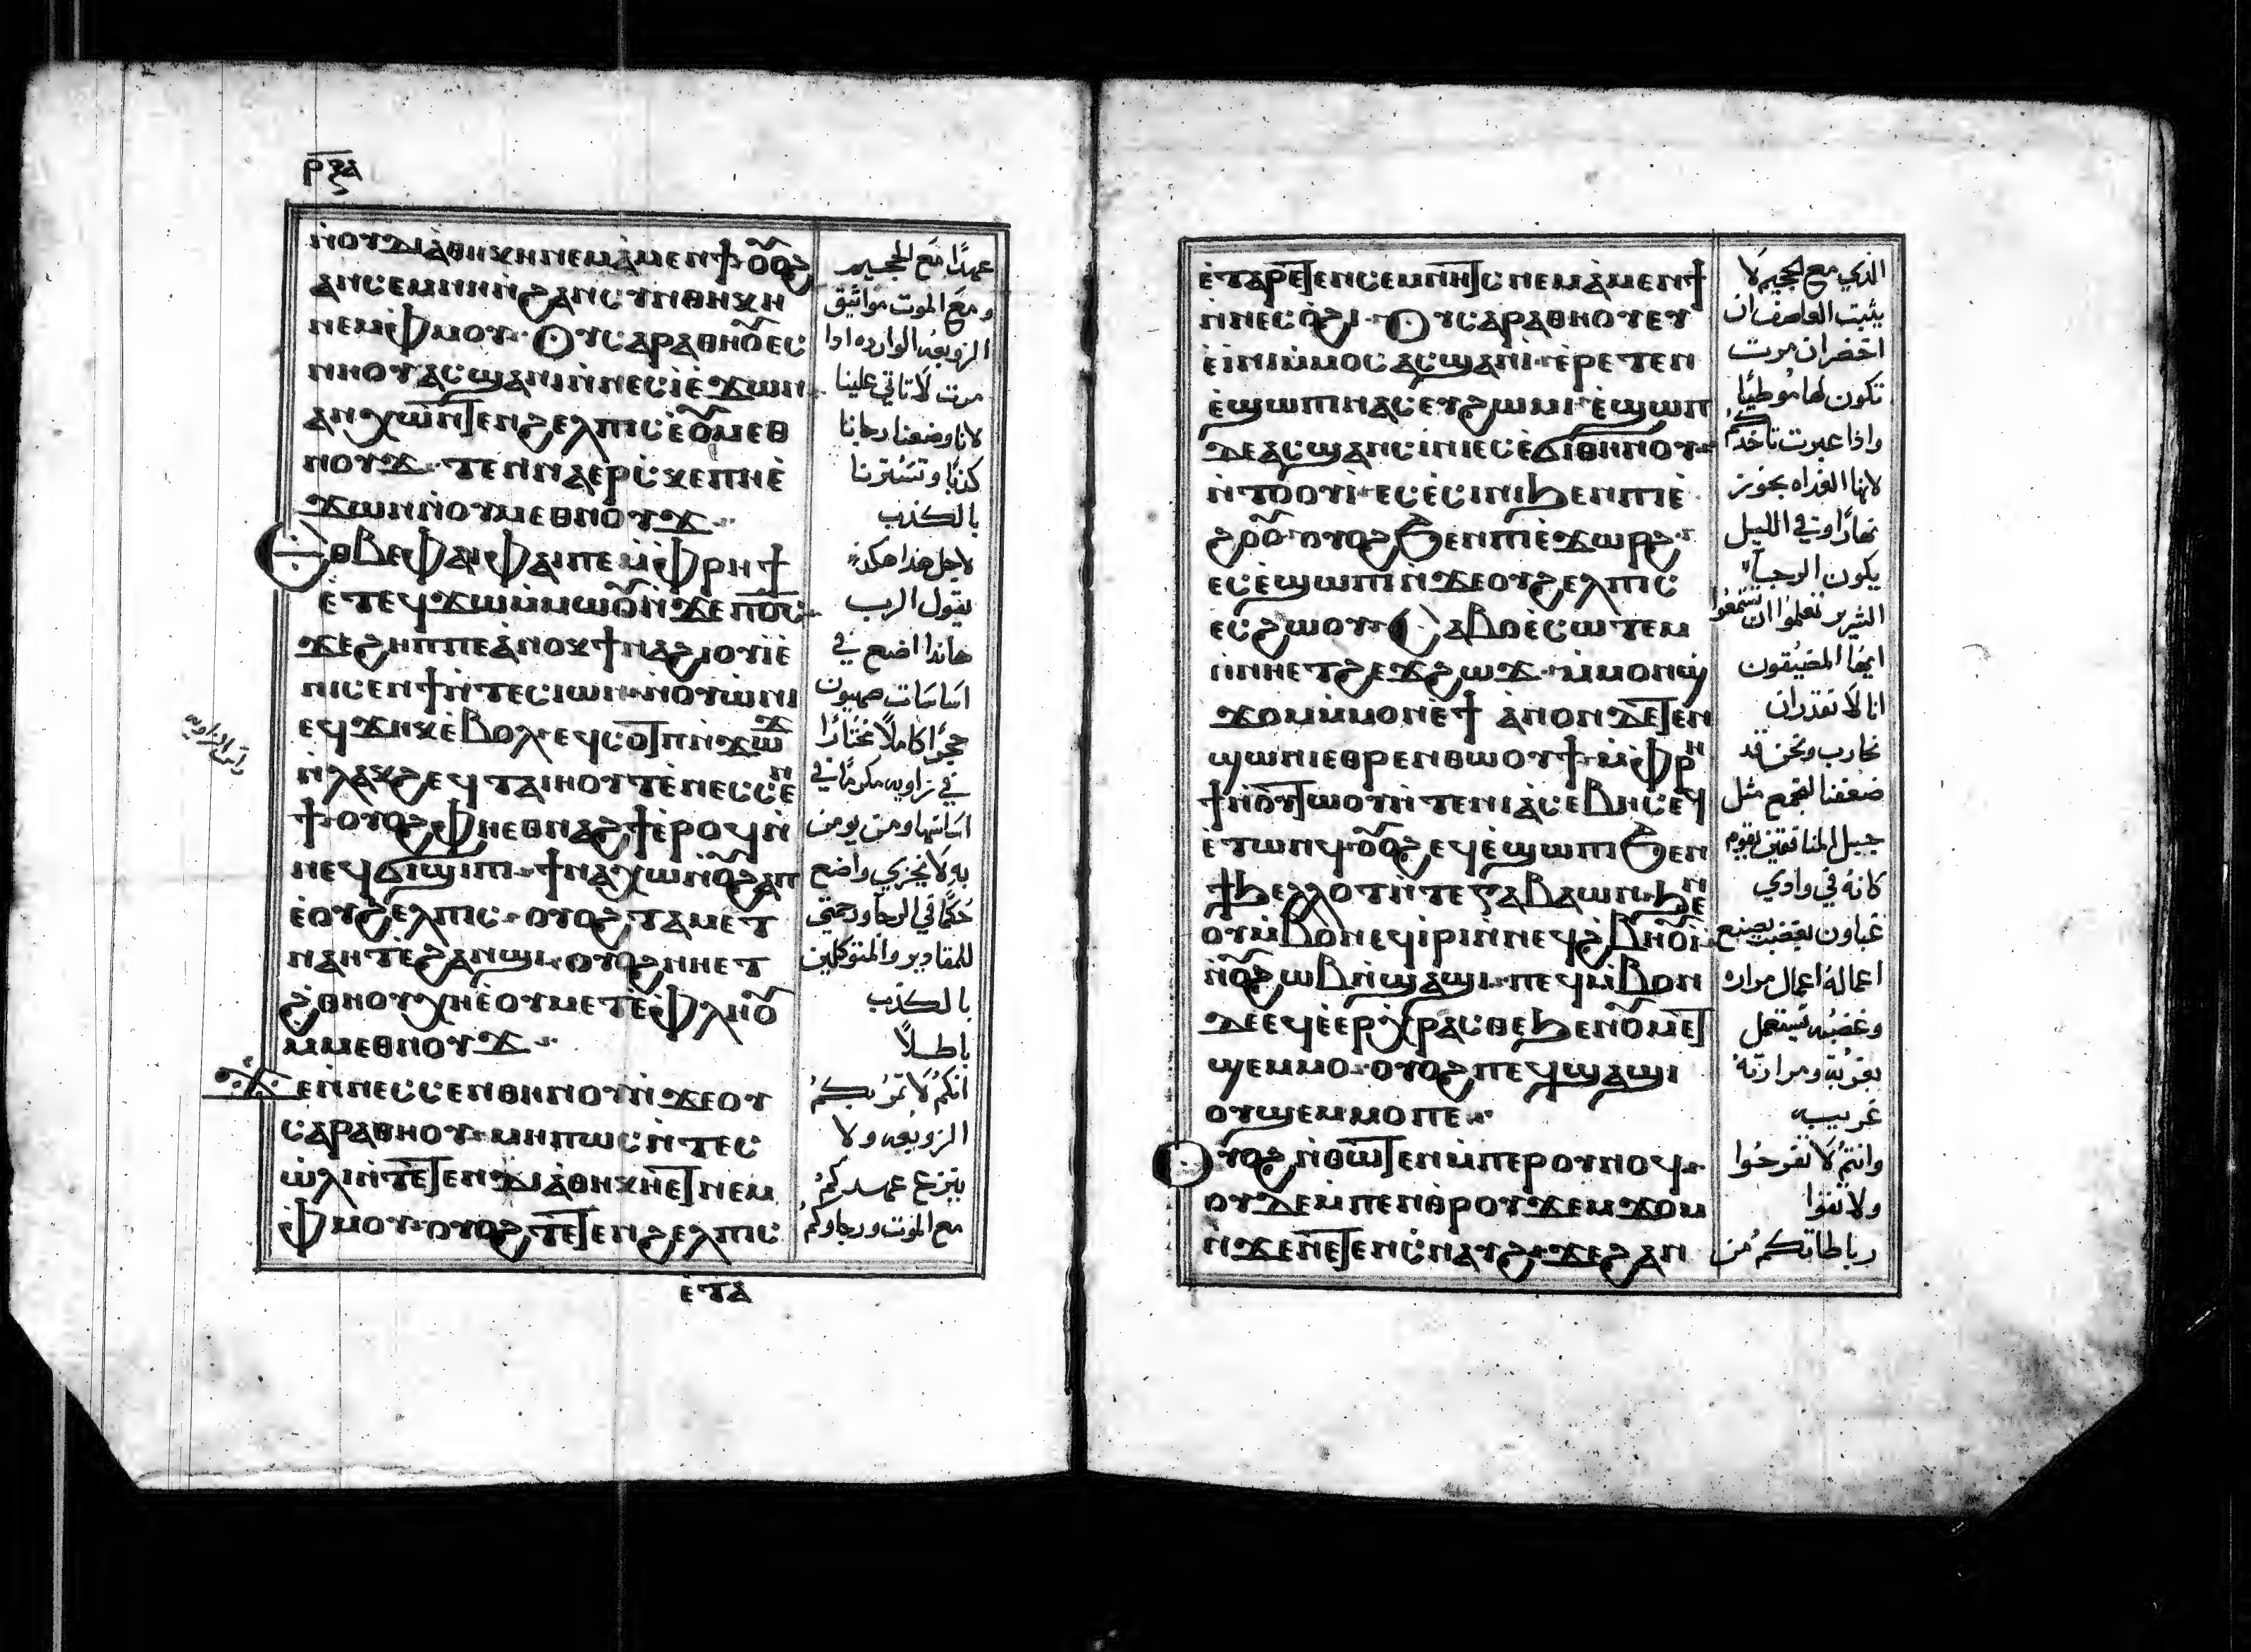 ⲣⲝⲁ
ⲛ̇ⲟⲩⲇⲓⲁⲑⲏⲕⲏ ⲛⲉⲙ ⲁ̀ⲙⲉⲛϯ ⲟⲩⲟϩ
ⲁⲛⲥⲉⲙⲛⲏⲛ ⲛ̇ϩⲁⲛⲥⲩⲛⲑⲏⲕⲏ
ⲛⲉⲙ ⲫⲙⲟⲩ Ⲟⲩⲥⲁⲣⲁⲑⲏⲟⲩ ⲉⲥ
ⲛⲏⲟⲩ ⲁⲥϣⲁⲛⲓ̀ ⲛ̇ⲛⲉⲥⲓ̀ ⲉ̀ϫⲱⲛ
ⲁⲛⲭⲱ ⲛ̇ⲧⲉⲛϩⲉⲗⲡⲓⲥ ⲉ̀ⲟⲩⲙⲉⲑ
ⲛⲟⲩϫ ⲧⲉⲛⲛⲁⲉⲣⲥⲕⲉⲡⲏ ⲉ̀
ϫⲱⲛ ⲛ̇ⲟⲩⲙⲉⲑⲛⲟⲩϫ
Ⲉⲑⲃⲉ ⲫⲁⲓ ⲫⲁⲓ ⲡⲉ ⲙ̇ⲫⲣⲏϯ
ⲉ̀ⲧⲉϥϫⲱ ⲙ̇ⲙⲱⲟⲩ ⲛ̇ϫⲉ ⲡⲟ̅ⲥ̅
ϫⲉ ϩⲏⲡⲡⲉ ⲁ̀ⲛⲟⲕ ϯⲛⲁϩⲓⲟⲩⲓ̀ ⲉ̀
ⲛⲓⲥⲉⲛϯ ⲛ̇ⲧⲉ ⲥⲓⲱⲛ ⲛ̇ⲟⲩⲱ̀ⲛⲓ
ⲉϥϫⲏⲕ ⲉ̀ⲃⲟⲗ ⲉϥⲥⲟⲧⲡ ⲛ̇ϫⲱϫ
ⲛ̇ⲗⲁⲕϩ ⲉϥⲧⲁⲓⲏⲟⲩⲧ ⲉ̀ⲛⲉⲥⲥⲉⲛ
ϯ ⲟⲩⲟϩ ⲫⲏ ⲉⲑⲛⲁϩϯ ⲉ̀ⲣⲟϥ ⲛ̇
ⲛⲉϥϭⲓϣⲓⲡⲓ ϯⲛⲁⲭⲱ ⲛ̇ⲟⲩϩⲁⲡ
ⲉ̀ⲟⲩϩⲉⲗⲡⲓⲥ ⲟⲩⲟϩ ⲧⲁⲙⲉⲧ
ⲛⲁⲏⲧ ⲉ̀ϩⲁⲛϣⲓ ⲟⲩⲟϩ ⲛⲏ ⲉⲧ
ϩⲑⲏⲟⲩ ⲭⲏ ⲉ̀ⲟⲩⲙⲉⲧⲉ̀ⲫⲗⲏⲟⲩ
ⲙⲙⲉⲑⲛⲟⲩϫ
ϫⲉ ⲛ̇ⲛⲉⲥⲥⲉⲛ ⲑⲏⲛⲟⲩ ⲛ̇ϫⲉ ⲟⲩ
ⲥⲁⲣⲁⲑⲏⲟⲩ ⲙⲏⲡⲱⲥ ⲛ̇ⲧⲉⲥ
ⲱ̀ⲗⲓ ⲛ̇ⲧⲉⲧⲉⲛⲇⲓⲁⲑⲏⲕⲏ ⲉⲧⲛⲉⲙ
ⲫⲙⲟⲩ ⲟⲩⲟϩ ⲧⲉⲧⲉⲛϩⲉⲗⲡⲓⲥ
ⲉ̀ⲧⲁ
عهدًا مع الجحيم
ومع الموت مواثيق
الزوبعه الوارده اذا
مرت لا تاتي علينا
لانا وضعنا رجانا
كذبًا ونتسترنا
بالكذب
لاجل هذا هكذا
يقول الرب
هانذا اضع في
اساسات صهيون
حجرًا كاملًا مختارًا
في زاويه مكرمًا في
اساسها ومن يومن
به لا يخزي واضع
حكمًا في الرجا ورحمتي
للمقادير والمتوكلين
بالكذب
باطلًا
انكم لا تمر بكم
الزوبعه ولا
ينزع عهدكم
مع الموت ورجاوكم
راس الزاويه
ⲉ̀ⲧⲁⲣⲉⲧⲉⲛⲥⲉⲙⲛⲏⲧⲥ ⲛⲉⲙ ⲁ̀ⲙⲉⲛϯ
ⲛ̇ⲛⲉⲥⲟ̀ϩⲓ Ⲟⲩⲥⲁⲣⲁⲑⲏⲟⲩ ⲉⲩ
ⲉ̀ⲓ̀ⲛⲓ ⲙ̇ⲙⲟⲥ ⲁⲥϣⲁⲛⲓ̀ ⲉ̀ⲣⲉⲧⲉⲛ
ⲉ̀ϣⲱⲡⲓ ⲛⲁⲥ ⲉⲩϩⲱⲙⲓ ⲉ̀ϣⲱⲡ
ⲇⲉ ⲁⲥϣⲁⲛⲥⲓⲛⲓ ⲉⲥⲉ̀ϭⲓ ⲑⲏⲛⲟⲩ
ⲛ̇ⲧⲟⲟⲩⲓ̀ ⲉⲥⲉ̀ⲥⲓⲛⲓ ϧⲉⲛ ⲡⲓⲉ̀
ϩⲟⲟⲩ ⲟⲩⲟϩ ϧⲉⲛ ⲡⲓⲉ̀ϫⲱⲣϩ
ⲉⲥⲉ̀ϣⲱⲡⲓ ⲛ̇ϫⲉ ⲟⲩϩⲉⲗⲡⲓⲥ
ⲉⲥϩⲱⲟⲩ Ⲙⲁⲃⲟ ⲉ̀ⲥⲱⲧⲉⲙ
ⲛ̇ⲛⲏ ⲉⲧϩⲉϫϩⲱϫ ⲙ̇ⲙⲟⲛ ϣ
ϫⲟⲙ ⲙ̇ⲙⲟⲛ ⲉ̀ϯ ⲁ̀ⲛⲟⲛ ⲇⲉ ⲧⲉⲛ
ϣⲱⲛⲓ ⲉⲑⲣⲉⲛⲑⲱⲟⲩϯ ⲙ̇ⲫⲣⲏ
ϯ ⲛ̇ⲟⲩⲧⲱⲟⲩ ⲛ̇ⲧⲉ ⲛⲓⲁ̀ⲥⲉⲃⲏⲥ ⲉϥ
ⲉ̀ⲧⲱⲛϥ ⲟⲩⲟϩ ⲉϥⲉ̀ϣⲱⲡⲓ ϧⲉⲛ
ϯϧⲉⲗⲗⲟⲧ ⲛ̇ⲧⲉ ⲅⲁⲃⲁⲱⲛ ϧⲉⲛ
ⲟⲩⲙ̇ⲃⲟⲛ ⲉϥⲓ̀ⲣⲓ ⲛ̇ⲛⲉϥϩⲃⲏⲟⲩⲓ̀
ⲛ̇ⲟⲩϩⲱⲃ ⲛ̇ϣⲁϣⲓ ⲡⲉϥⲙ̇ⲃⲟⲛ
ⲇⲉ ⲉϥⲉ̀ⲉⲣⲭⲣⲁⲥⲑⲉ ϧⲉⲛ ⲟⲩⲙⲉⲧ
ϣⲉⲙⲙⲟ ⲟⲩⲟϩ ⲡⲉϥϣⲁϣⲓ
ⲟⲩϣⲉⲙⲙⲟ ⲡⲉ
Ⲟⲩⲟϩ ⲛ̇ⲑⲱⲧⲉⲛ ⲙ̇ⲡⲉⲣⲟⲩⲛⲟϥ
ⲟⲩⲇⲉ ⲙ̇ⲡⲉⲛⲑⲣⲟⲩϫⲉⲙϫⲟⲙ
ⲛ̇ϫⲉ ⲛⲉⲧⲉⲛⲥ̇ⲛⲁⲩϩ ϫⲉ ϩⲁⲛ
الذي مع الجحيم لا
يثبت العاصف ان
احضر ان مرت
تكون لها موطيًا
واذا عبرت تاخذكم
لانها الغداه بجوز
نهارًا وفي الليل
يكون الرجا
الشرير تعلموا ان تسمعوا
ايها المضيقون
انا لا نقدر ان
نحارب ونحن قد
ضعفنا لنجمع مثل
جبل المنافقين يقوم
كانه في وادي
غباون بغضب يصنع
اعماله اعمال مراره
وغضبه يستعمل
بغربه ومرارته
غريبه
وانتم لا تفرحوا
ولا تقوا
رباطاتكم من